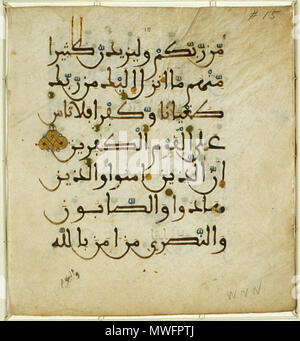 # 15
من ربكم وليزيدن كثيرا
منهم ما انزل اليك من ربك
طغيانا وكفرا فلا تاس
على القوم الكفرين
ان الذين امنوا والذين
هادوا والصابون
والنصرى من امن بالله
واليوم
WNN